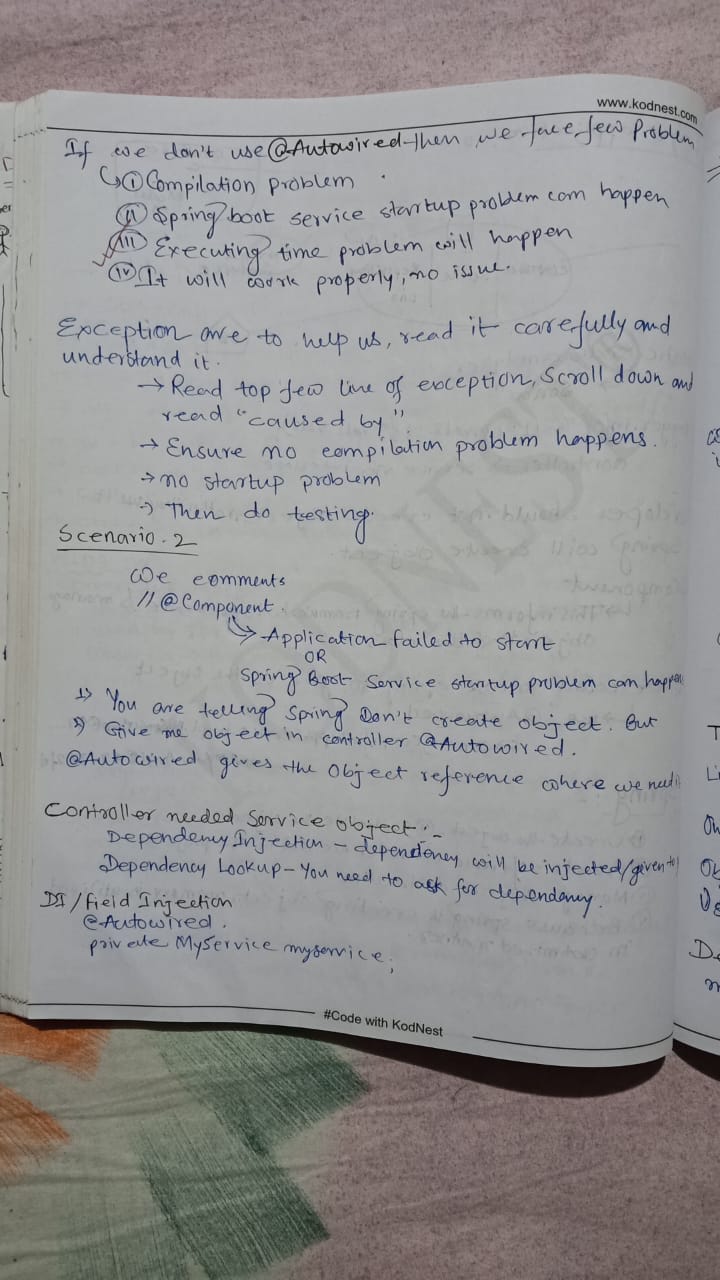 www.kodnest.com
If we don't use @Autowired then we face few Problem
↳ ① Compilation problem
(ii) Spring boot service startup problem can happen
(iii) Executing time problem will happen
(iv) It will work properly, no issue.
Exception are to help us, read it carefully and
understand it.
→ Read top few line of exception, Scroll down and
read "caused by"
→ Ensure no compilation problem happens.
→ no startup problem
→ Then do testing.
Scenario.2
We comments
// @Component.
↳ Application failed to start
OR
Spring Boot Service startup problem can happen
1) You are telling Spring Don't create object. But
2) Give me object in controller @Autowired.
@Autowired gives the object reference where we need
Controller needed Service object:-
Dependency Injection - dependency will be injected/given to
Dependency Lookup - You need to ask for dependancy.
DI/Field Injection
@Autowired.
private MyService myservice;
#Code with KodNest